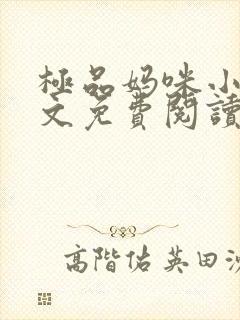 極品妈咪小
文免費閱讀
高階佑英田